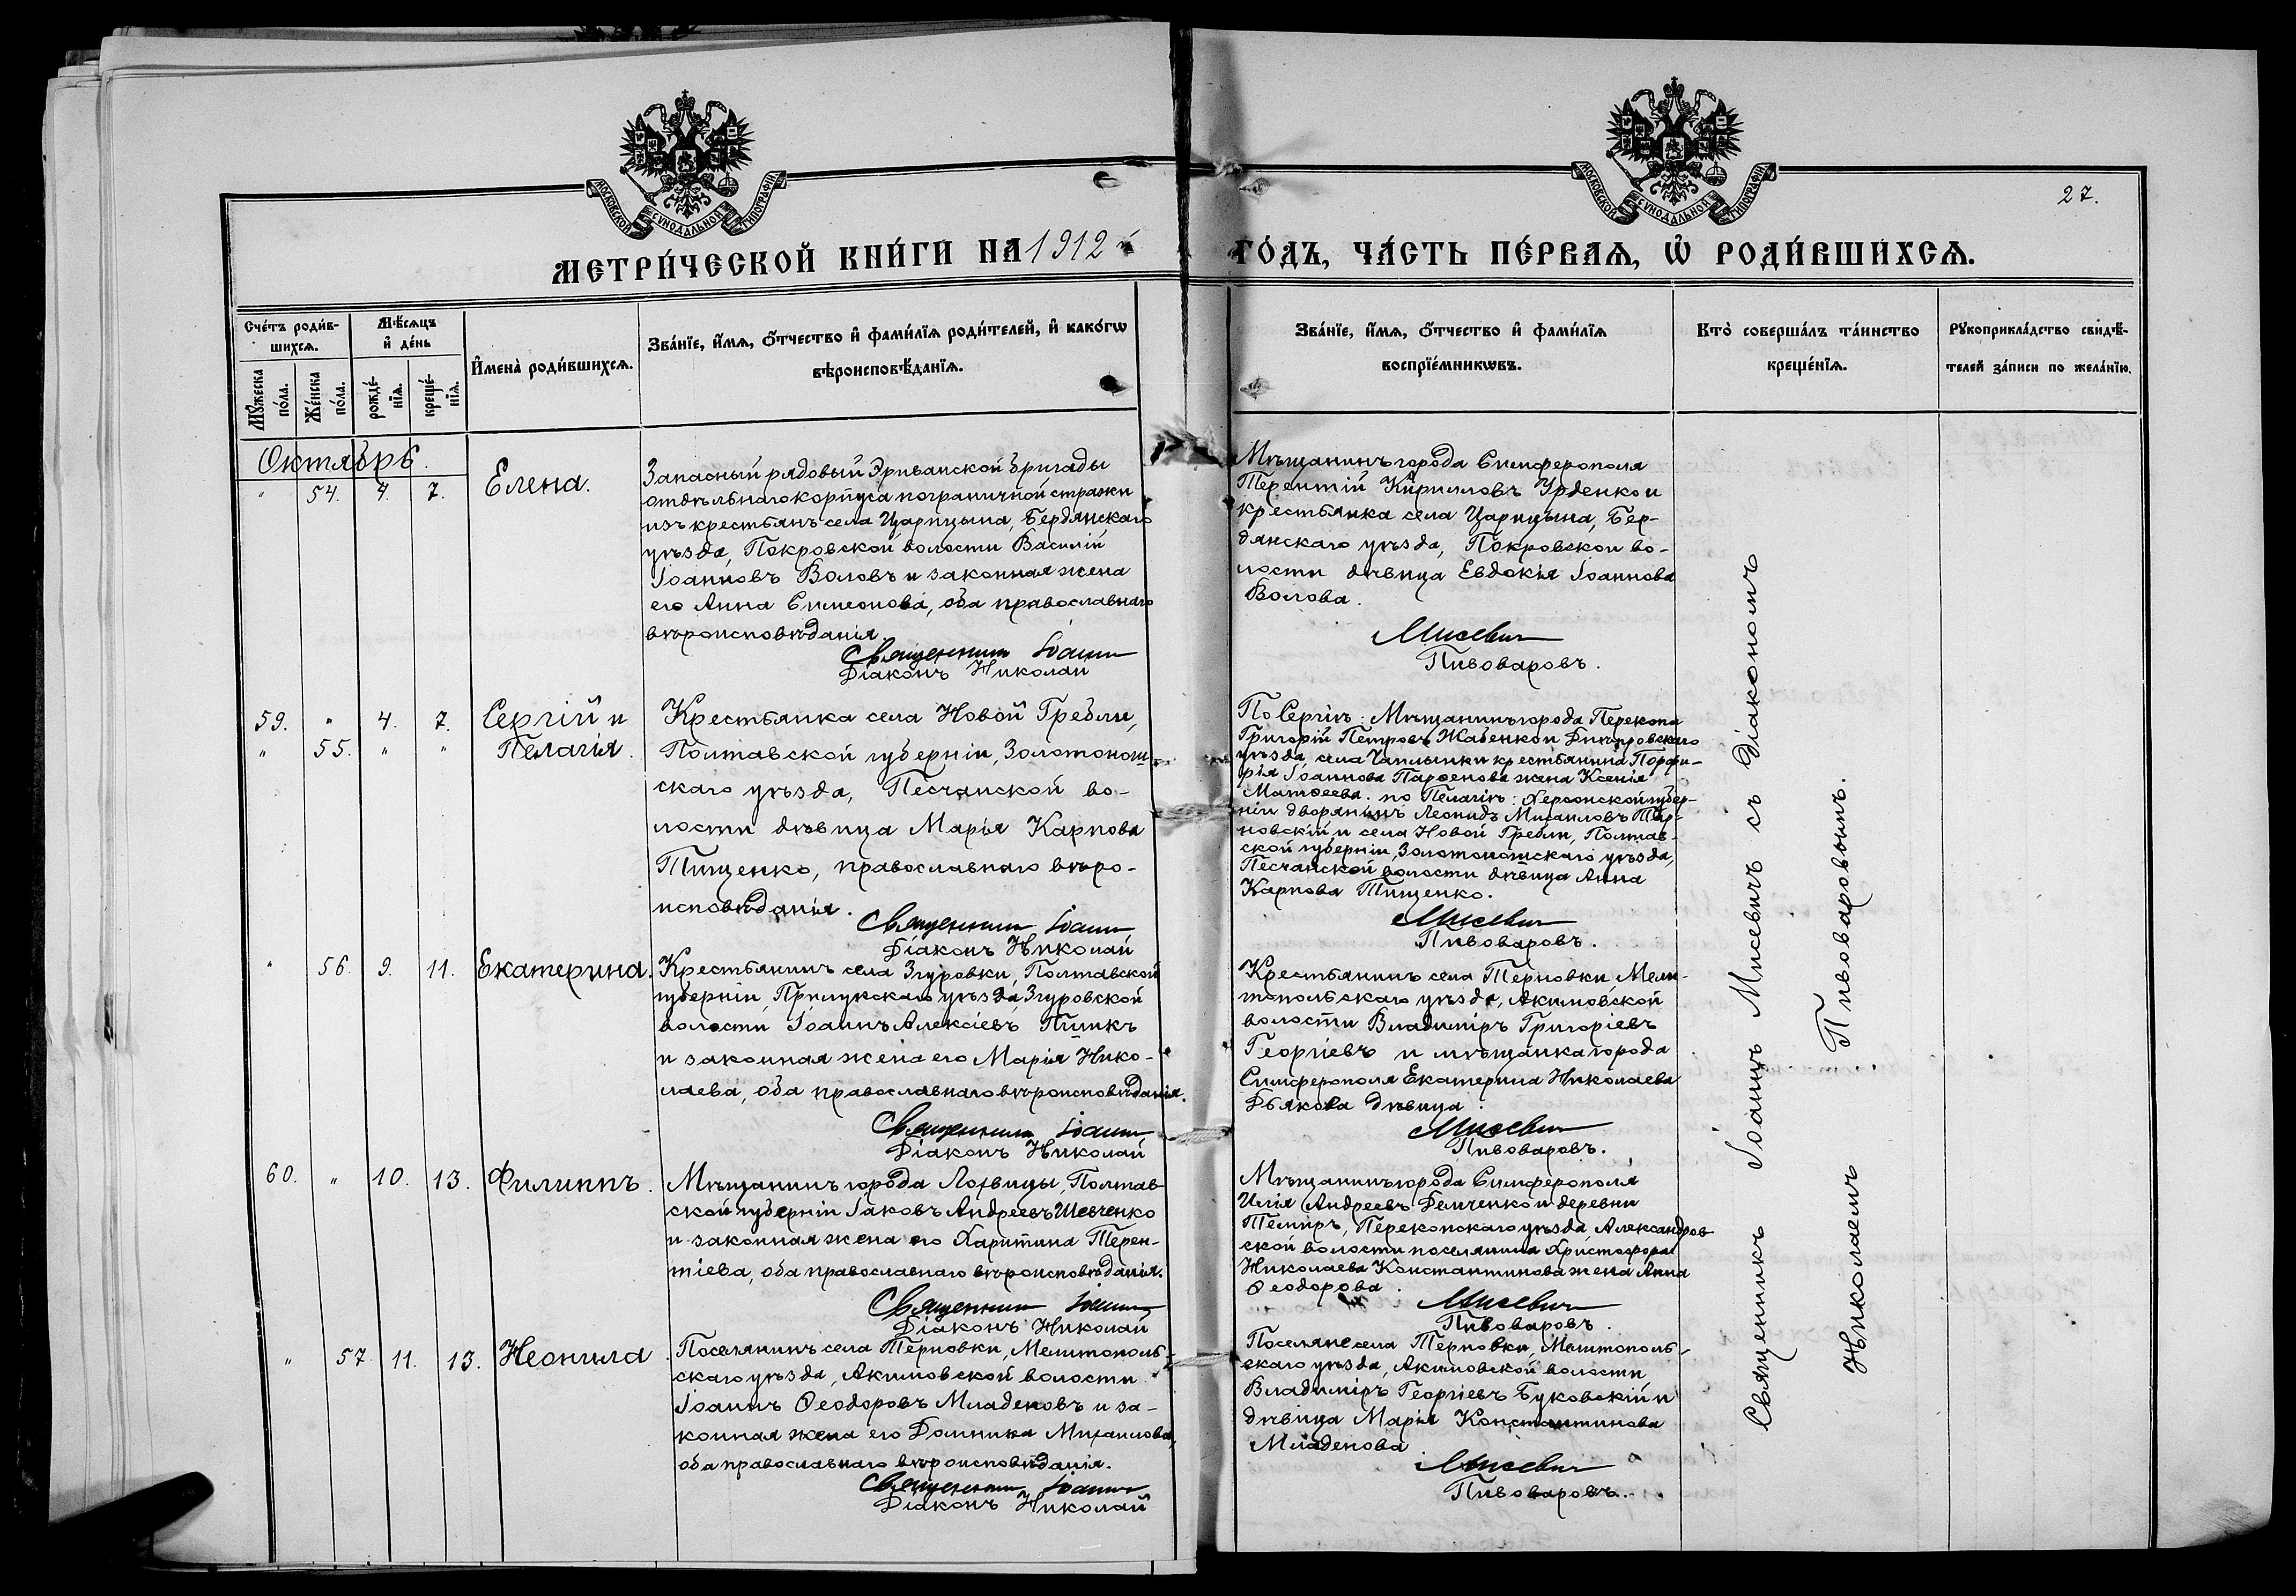 МОСКОВСКОЙ СѴНОДАЛЬНОЙ ТИПОГРАФІИ
МОСКОВСКОЙ СѴНОДАЛЬНОЙ ТИПОГРАФІИ
27.
МЕТРИ́ЧЕСКОЙ КНИ́ГИ НА 1912 й
ГО́ДЪ, ЧА́СТЬ ПЕ́РВАѦ, Ѡ҆ РОДИ́ВШИХСѦ.
Сче́тъ роди́в-
шихсѧ.
Мѣ́сѧцъ
и҆ де́нь
И҆мена̀ роди́вшихсѧ.
Зва́нїе, и҆́мѧ, ѻ҆́тчество и҆ фами́лїѧ роди́телей, и҆ како́гѡ
вѣроисповѣ́данїѧ.
Мꙋ́жеска
по́ла.
Же́нска
по́ла.
рожде́-
нїѧ.
креще́-
нїѧ.
Зва́нїе, и҆́мѧ, ѻ҆́тчество и҆ фами́лїѧ
воспрїе́мникѡвъ.
Кто̀ соверша́лъ та́инство
креще́нїѧ.
Рꙋкоприкла́дство свидѣ́-
телей за́писи по жела́нїю.
Октябрь.
" 54. 4. 7. Елена.
Запасный рядовый Эриванской бригады
отдѣльнаго корпуса пограничной стражи
изъ крестьянъ села Царицына, Бердянскаго
уѣзда, Покровской волости Василій
Іоанновъ Воловъ и законная жена
его Анна Симеонова, оба православнаго
вѣроисповѣданія.
Священник Іоанн
Діаконъ Николай
Мѣщанинъ города Симферополя
Терентій Кирилловъ Урденко и
крестьянка села Царицына, Бер-
дянскаго уѣзда, Покровской во-
лости дѣвица Евдокія Іоаннова
Волова.
Мисевич
Пивоваровъ.
59. " 4. 7. Сергій и
" 55. " " Пелагія.
Крестьянка села Новой Гребли,
Полтавской губерніи, Золотонош-
скаго уѣзда, Песчанской во-
лости дѣвица Марія Карпова
Тищенко, православнаго вѣро-
исповѣданія.
Священник Іоанн
Діаконъ Николай
По Сергіѣ: Мѣщанинъ города Перекопа
Григорій Петровъ Жабенко и Днѣпровскаго
уѣзда, села Чаплынки крестьянина Порфи-
рія Іоаннова Парѳенова жена Ксенія
Матѳеева. по Пелагіѣ: Херсонской губер-
ніи дворянинъ Леонидъ Михаиловъ Тар-
новскій и села Новой Гребли, Полтав-
ской губерніи, Золотоношскаго уѣзда,
Песчанской волости дѣвица Анна
Карпова Тищенко.
Мисевич
Пивоваровъ.
" 56. 9. 11. Екатерина.
Крестьянинъ села Згуровки, Полтавской
губерніи, Прилукскаго уѣзда, Згуровской
волости Іоаннъ Алексіевъ
и законная жена его Марія Нико-
лаева, оба православнаго вѣроисповѣданія.
Священник Іоанн
Діаконъ Николай
Крестьянинъ села Терновки, Мели-
топольскаго уѣзда, Акимовской
волости Владиміръ Григоріевъ
Георгіевъ и мѣщанка города
Симферополя Екатерина Николаева
Дьякова дѣвица.
Мисевич
Пивоваровъ.
60. " 10. 13. Филиппъ.
Мѣщанинъ города Лохвицы, Полтав-
ской губерніи Іаковъ Андреевъ Шевченко
и законная жена его Харитина Терен-
тіева, оба православнаго вѣроисповѣданія.
Священник Іоанн
Діаконъ Николай
Мѣщанинъ города Симферополя
Илія Андреевъ Демченко и деревни
Темиръ, Перекопскаго уѣзда, Александров
ской волости поселянина Христофора
Николаева Константинова жена Анна
Ѳеодорова.
Мисевич
Пивоваровъ.
" 57. 11. 13. Неонила.
Поселянинъ села Терновки, Мелитополь-
скаго уѣзда, Акимовской волости
Іоаннъ Ѳеодоровъ Младеновъ и за-
конная жена его Домника Михаилова,
оба православнаго вѣроисповѣданія.
Священник Іоанн
Діаконъ Николай
Поселяне села Терновки, Мелитополь-
скаго уѣзда, Акимовской волости
Владиміръ Георгіевъ Буковскій и
дѣвица Марія Константинова
Младенова
Мисевич
Пивоваровъ.
Священникъ Іоаннъ Мисевичъ съ Діакономъ
Николаемъ Пивоваровымъ.